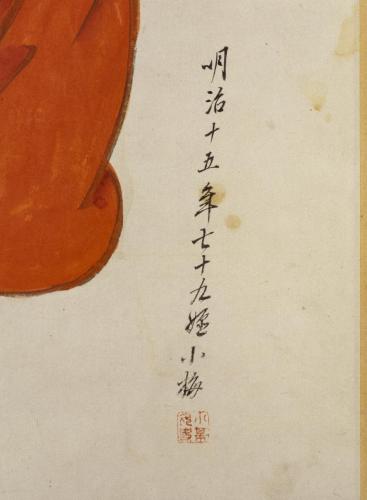 明治十五年七十九媼小梅